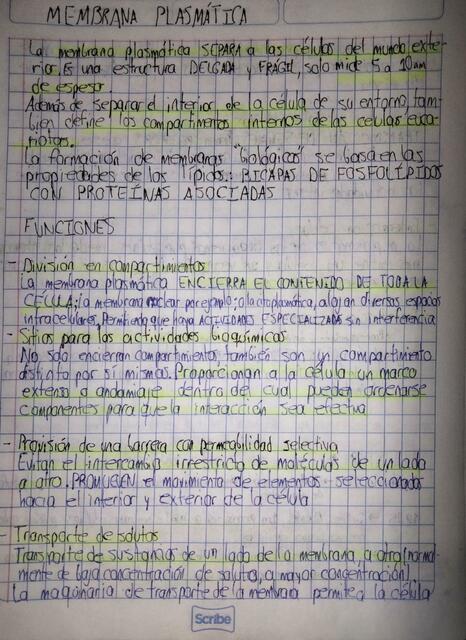 MEMBRANA PLASMÁTICA
La membrana plasmática SEPARA a las células del mundo exte-
rior. Es una estructura DELGADA y FRÁGIL, solo mide 5 a 10 nm
de espesor.
Además de separar el interior de la célula de su entorno, tam-
bien define los compartimentos internos de las celulas euca-
riotas.
La formación de membranas "biológicas" se basa en las
propiedades de los lípidos: BICAPAS DE FOSFOLÍPIDOS
CON PROTEÍNAS ASOCIADAS
FUNCIONES
- División en compartimientos
La membrana plasmática ENCIERRA EL CONTENIDO DE TODA LA
CELULA; la membrana nuclear por ejemplo; o la citoplasmática, alojan diversos espacios
intracelulares, Permitiendo que haya ACTIVIDADES ESPECIALIZADAS sin interferencia
- Sitios para las actividades bioquimicas
No solo encierran compartimientos también son un compartimiento
distinto por sí mismas. Proporcionan a la célula un marco
extenso o andamiaje dentro del cual pueden ordenarse
componentes para que la interacción sea efectiva
- Provisión de una barrera con permeabilidad selectiva
Evitan el intercambio irrestricto de moléculas de un lado
a otro. PROMUEVEN el movimiento de elementos seleccionados
hacia el interior y exterior de la célula
- Transporte de solutos
Transporte de sustancias de un lado de la membrana, a otro (normal-
mente de baja concentración de solutos, a mayor concentración)
La maquinaria de transporte de la membrana permite a la célula
Scribe